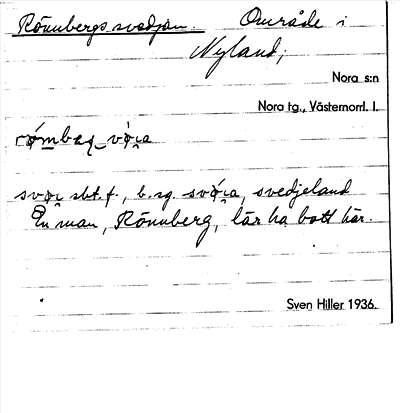 Rönnbergs svedjan. Område i
Nyland;
Nora s:n
Nora tg., Västernorrl. l.
sbt. f., b. sg. svedjeland
En man, Rönnberg, lär ha bott här.
Sven Hiller 1936.